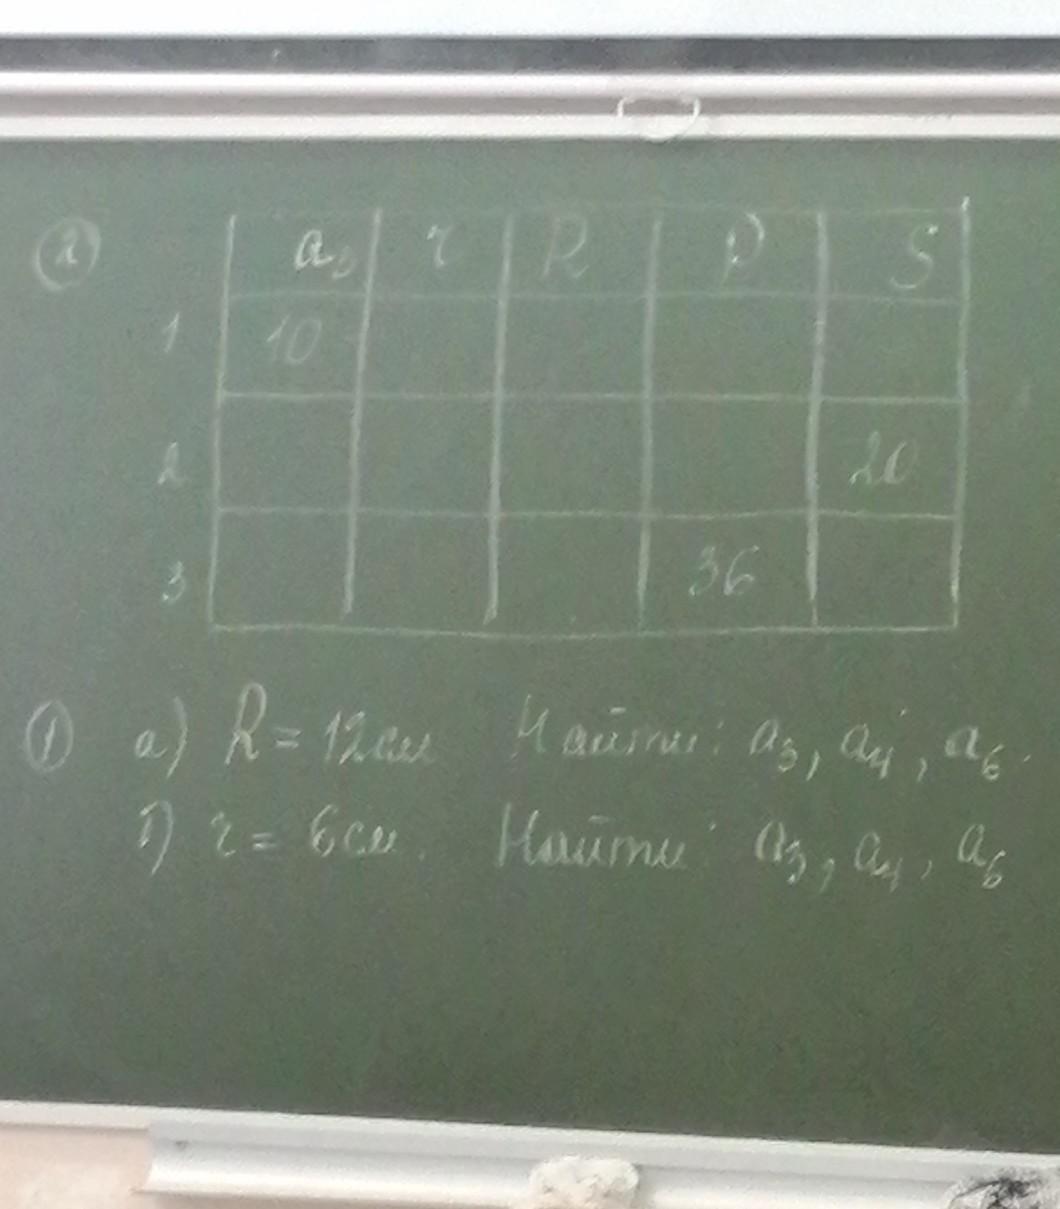 ② a₃ r R P S
1 10
2 20
3 36
① а) R = 12см Найти: a₃, a₄, a₆.
б) r = 6см. Найти: a₃, a₄, a₆